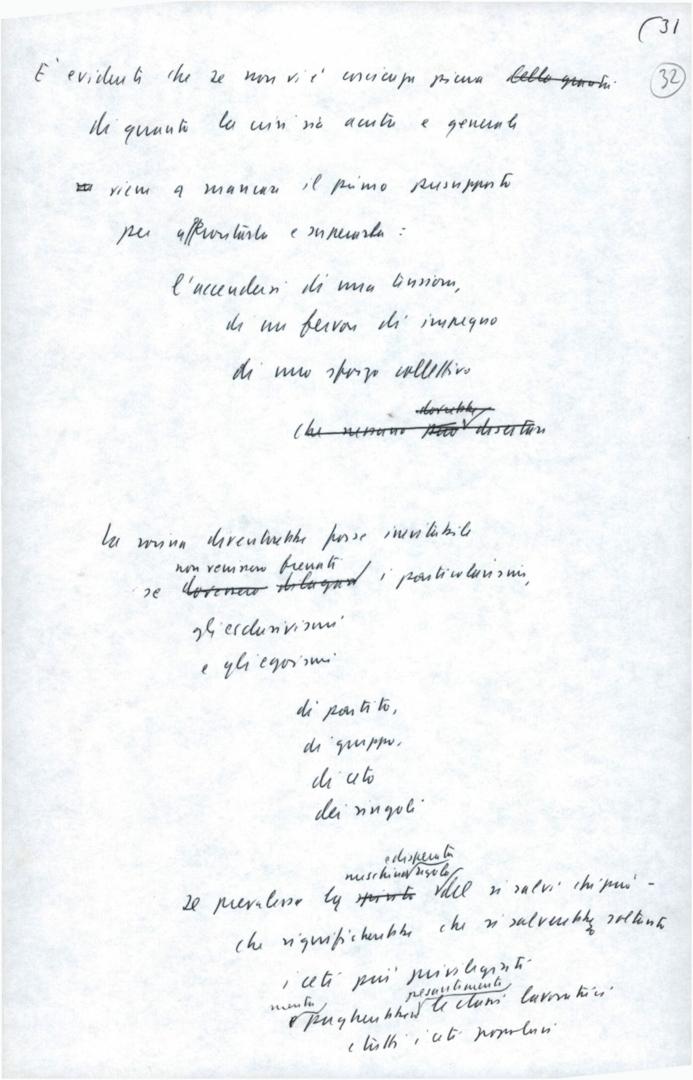 (31
32
E' evidente che se non vi è coscienza piena della gravità
di quanto la crisi sia acuta e generale
viene a mancare il primo presupposto
per affrontarla e superarla:
l'accendersi di una tensione,
di un fervore di impegno
di uno sforzo collettivo
dovrebbe
che nessuno può disertare
La rovina diventerebbe forse inevitabile
non venissero frenati
se dovessero dilagare i particolarismi,
gli esclusivismi
e gli egoismi
di partito,
di gruppo,
di ceto
dei singoli
e disperata
meschina regola
se prevalesse la spinta del si salvi chi può -
che significherebbe che si salverebbero soltanto
i ceti più privilegiati
mentre pesantemente
e pagherebbero le classi lavoratrici
e tutti i ceti popolari